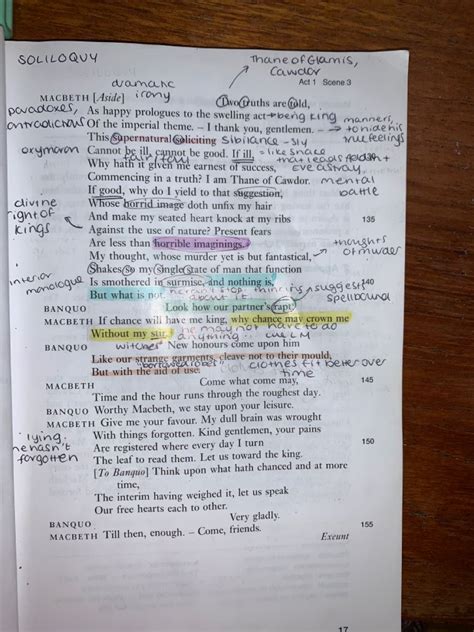 SOLILOQUY
Thane of Glamis,
Cawdor
Act 1 Scene 3
dramatic
irony
MACBETH [Aside] Two truths are told,
paradoxes, As happy prologues to the swelling act → being king manners,
Of the imperial theme. – I thank you, gentlemen. – → to hide his
true feelings
This supernatural soliciting sibilance - sly
oxymoron Cannot be ill, cannot be good. If ill, = like snake
fair/foul that leads
eve astray
Why hath it given me earnest of success,
Commencing in a truth? I am Thane of Cawdor. mental
battle
If good, why do I yield to that suggestion,
divine
right of
kings
Whose horrid image doth unfix my hair
And make my seated heart knock at my ribs 135
Against the use of nature? Present fears
Are less than horrible imaginings.
My thought, whose murder yet is but fantastical, thoughts
of murder
Shakes so my single state of man that function
interior
monologue
Is smothered in surmise, and nothing is, 140
But what is not. he can't stop thinking
about it
suggests
spellbound
BANQUO Look how our partner's rapt.
MACBETH If chance will have me king, why chance may crown me
Without my stir. he may not have to do
anything
BANQUO New honours come upon him
witches
Like our strange garments, cleave not to their mould,
"borrowed robes"
But with the aid of use. clothes fit better over
time
MACBETH Come what come may, 145
Time and the hour runs through the roughest day.
BANQUO Worthy Macbeth, we stay upon your leisure.
MACBETH Give me your favour. My dull brain was wrought
lying,
he hasn't
forgotten
With things forgotten. Kind gentlemen, your pains
Are registered where every day I turn 150
The leaf to read them. Let us toward the king.
[To Banquo] Think upon what hath chanced and at more
time,
The interim having weighed it, let us speak
Our free hearts each to other.
BANQUO Very gladly.
MACBETH Till then, enough. – Come, friends. 155
Exeunt
17